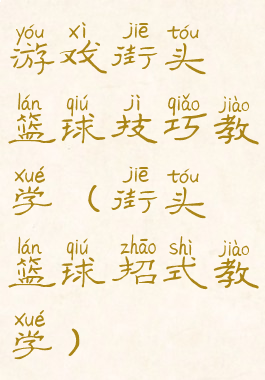 yóu xì jiē tóu
游戏街头
lán qiú jì qiǎo jiào
篮球技巧教
xué jiē tóu
学（街头
lán qiú zhāo shì jiào
篮球招式教
xué
学）